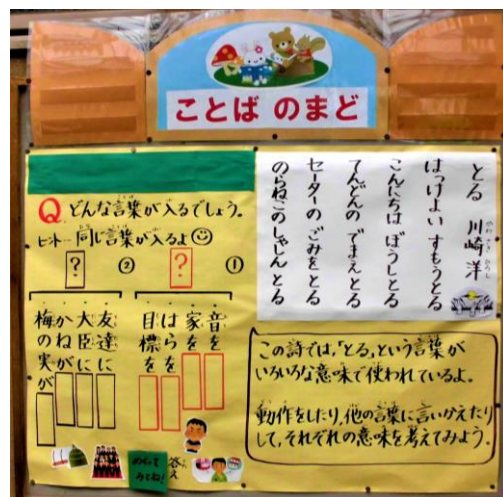 ことば のまど
とる 川崎洋
かわさき ひろし
はっけよい すもうとる
こんにちは ぼうしとる
てんどんの でまえとる
セーターの ごみをとる
のらねこの しゃしんとる
この詩では,「とる」という言葉が
いろいろな意味で使われているよ。
動作をしたり,他の言葉に言いかえたり
して,それぞれの意味を考えてみよう。
Q どんな言葉が入るでしょう。
ヒント… 同じ言葉が入るよ
①
?
音を
家を
はらを
目標を
②
?
友達に
大臣に
かねが
梅の実が
答え
めくって
みてね!